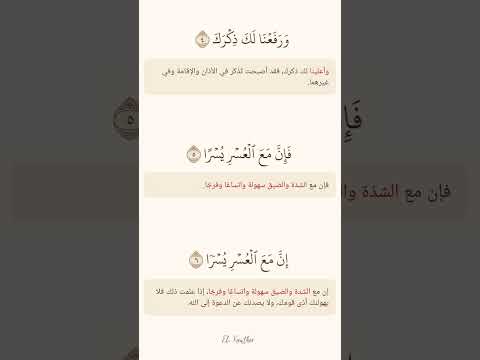 وَرَفَعْنَا لَكَ ذِكْرَكَ ٤
وأعلينا لك ذكرك، فقد أصبحت تُذكر في الأذان والإقامة وفي
غيرهما.
فَإِنَّ مَعَ ٱلْعُسْرِ يُسْرًا ٥
فإن مع الشدة والضيق سهولة واتساعًا وفرجًا.
إِنَّ مَعَ ٱلْعُسْرِ يُسْرًا ٦
إن مع الشدة والضيق سهولة واتساعًا وفرجًا، إذا علمت ذلك فلا
يهولنك أذى قومك، ولا يصدنك عن الدعوة إلى الله.